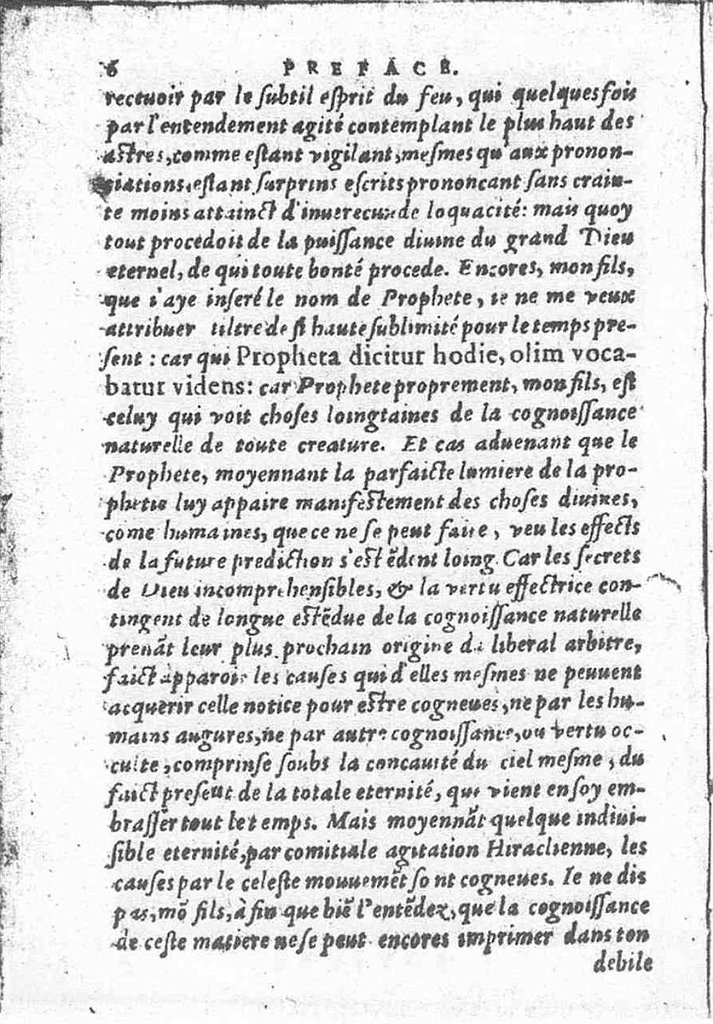 6 PREFACE.
receuoir par le subtil esprit du feu, qui quelquesfois
par l'entendement agité contemplant le plus haut des
astres, comme estant vigilant, mesmes qu'aux pronon-
ciations, estant surprins escrits prononcant sans crain-
te moins attainct d'inuerecunde loquacité: mais quoy
tout procedoit de la puissance diuine du grand Dieu
eternel, de qui toute bonté procede. Encores, mon fils,
que i'aye inseré le nom de Prophete, ie ne me veux
attribuer tiltre de si haute sublimité pour le temps pre-
sent: car qui Propheta dicitur hodie, olim voca-
batur videns: car Prophete proprement, mon fils, est
celuy qui voit choses loingtaines de la cognoissance
naturelle de toute creature. Et cas aduenant que le
Prophete, moyennant la parfaicte lumiere de la pro-
phetie luy appaire manifestement des choses diuines,
come humaines, que ce ne se peut faire, veu les effects
de la future prediction s'estēdent loing. Car les secrets
de Dieu incomprehensibles, & la vertu effectrice con-
tingent de longue estēdue de la cognoissance naturelle
prenāt leur plus prochain origine du liberal arbitre,
faict apparoir les causes qui d'elles mesmes ne peuuent
acquerir celle notice pour estre cogneues, ne par les hu-
mains augures, ne par autre cognoissance, ou vertu oc-
culte, comprinse soubs la concauité du ciel mesme, du
faict present de la totale eternité, que vient en soy em-
brasser tout le temps. Mais moyennāt quelque indiui-
sible eternité, par comitiale agitation Hiraclienne, les
causes par le celeste mouuemēt sont cogneues. Ie ne dis
pas, mō fils, à fin que biē l'entēdez, que la cognoissance
de ceste matiere ne se peut encores imprimer dans ton
debile